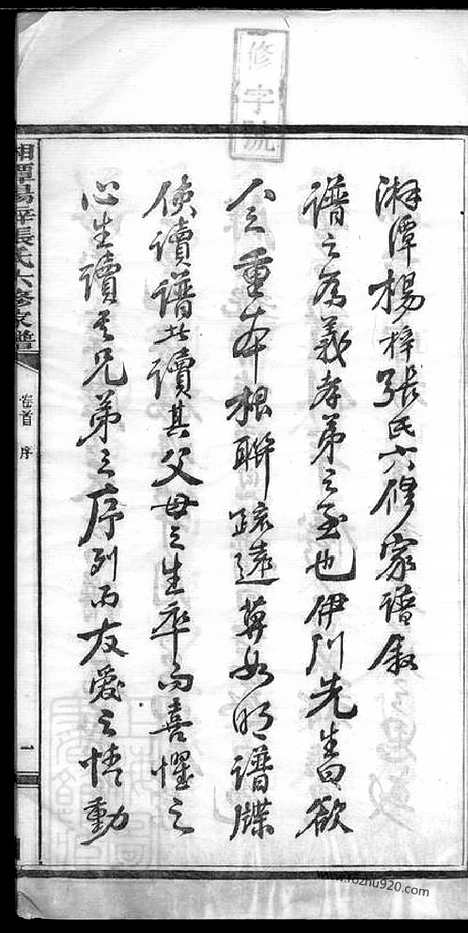 修字號
湘潭楊梓張氏六修家譜敘
譜之為義孝弟之至也伊川先生曰欲
人之重本根聯疏遠莫如明譜牒
使讀譜者讀其父母之生卒而喜懼之
心生讀其兄弟之序列而友愛之情動
湘潭楊梓張氏六修家譜
卷首 序
一
www.fozhu920.com